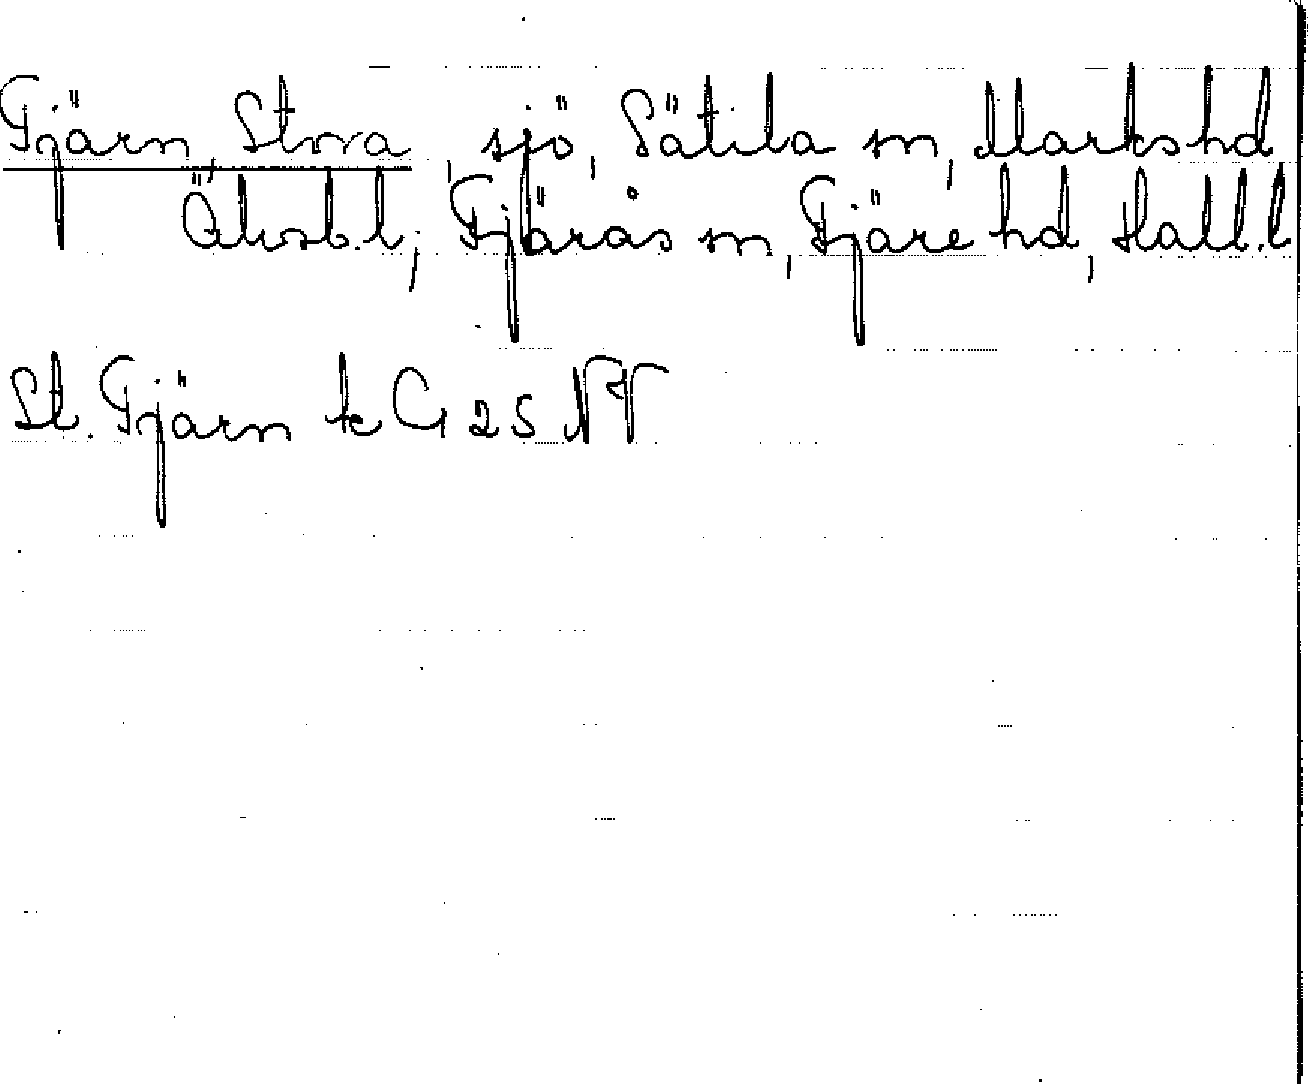 Tjärn, Stora, sjö, Sätila sn, Marks hd
Älvsb.l; Fjärås sn, Fjäre hd, Hall.l
St. Tjärn tc G 25 NV